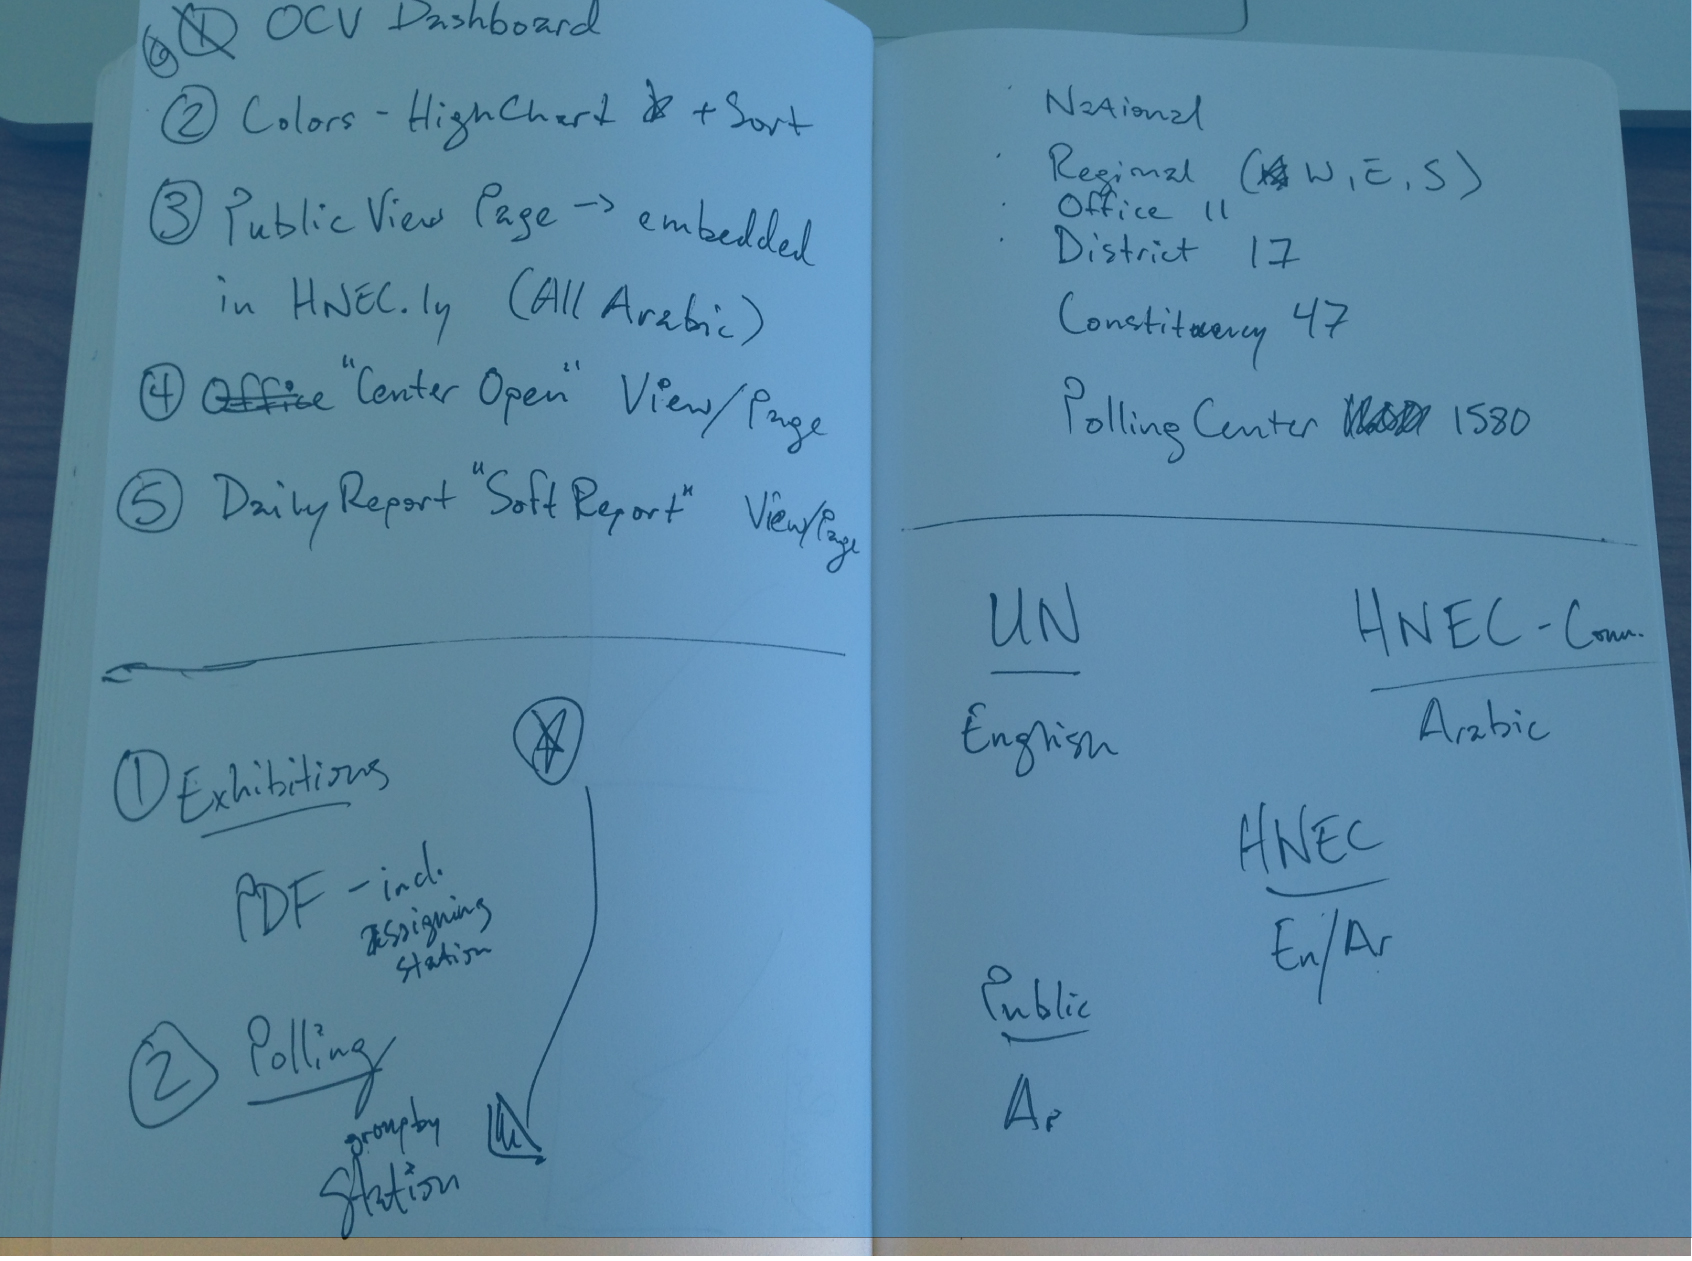 6 1 OCV Dashboard
2 Colors - HighChart + Sort
3 Public View Page → embedded
in HNEC.ly (All Arabic)
4 Office "Center Open" View/Page
5 Daily Report "Soft Report" View/Page
1 Exhibitions
PDF - incl.
assigning
station
2 Polling
group by
Station
National
Regional (W, E, S)
Office 11
District 17
Constituency 47
Polling Center 1580
UN
English
HNEC - Comm.
Arabic
HNEC
En/Ar
Public
Ar